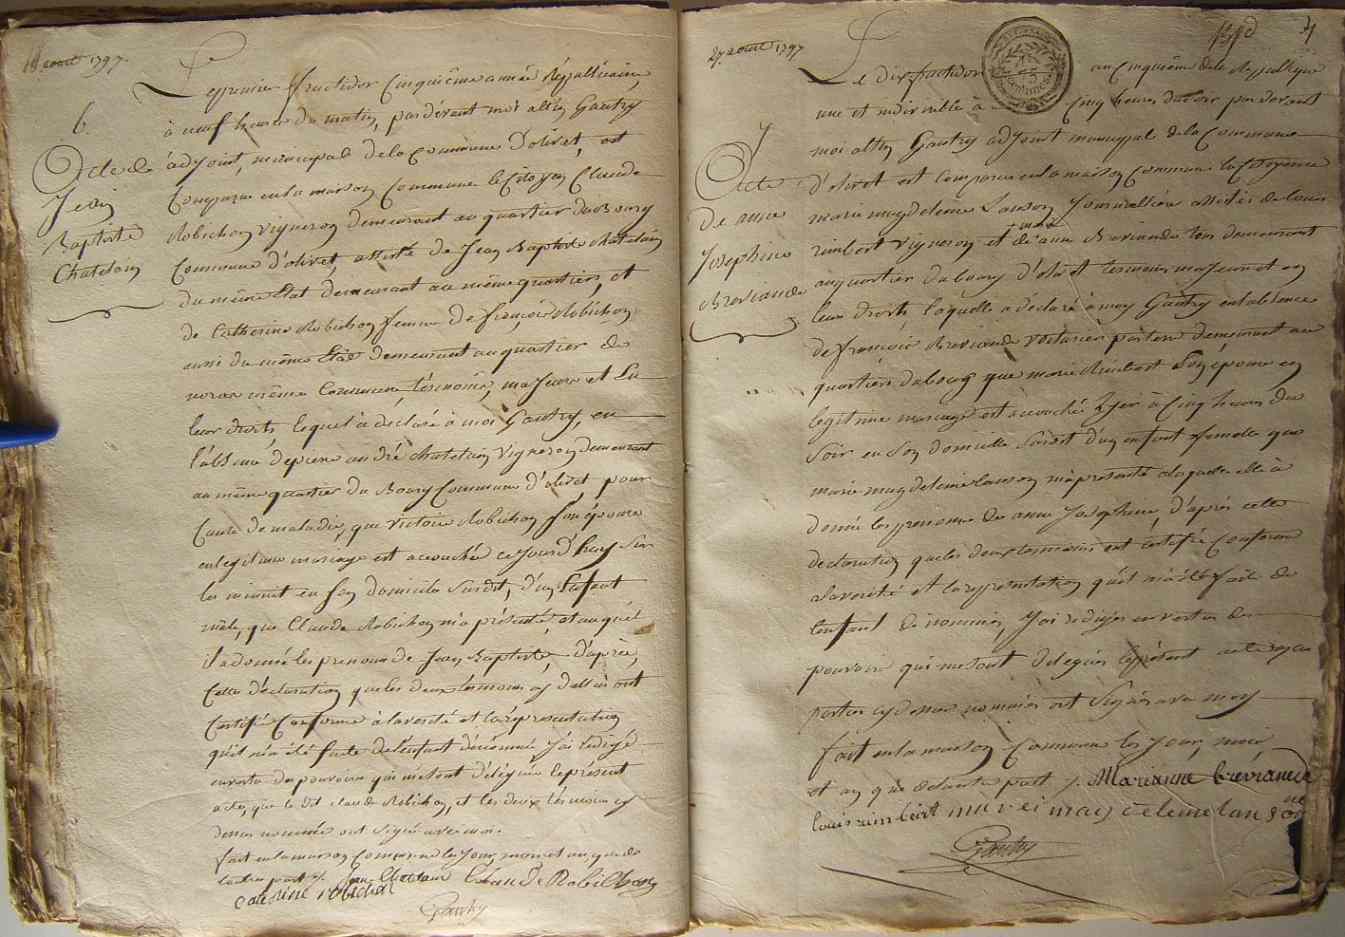 18 aout 1797.
6
Acte de
Jean
Baptiste
Chatelain
Le premier fructidor cinquième année républicaine
à neuf heures du matin, pardevant moi altin Gautry
adjoint, municipal de la commune d'olivet, est
comparu en la maison commune le citoyen Claude
Robichon vigneron demeurant au quartier du Bourg
commune d'olivet, assisté de Jean Baptiste chatelain
du même état demeurant au même quartier, et
de Catherine Robichon femme de françois Robichon
aussi du même état demeurant au quartier du
même commune, témoins, majeurs et en
leur droits lequel a déclaré à moi Gautry, en
l'absence de pierre andré chatelain vigneron demeurant
au même quartier du Bourg commune d'olivet pour
cause de maladie, que victoire Robichon son épouse
en legitime mariage est accouché ce jourd'huy
minuit en son domicile susdit, d'un Enfant
mâle, que Claude Robichon m'a présenté, et auquel
il a donné les prenoms de Jean Baptiste, d'après,
cette déclaration, que les deux témoins cy dessus ont
certifié conforme à la verité et la représentation
qu'il m'a été faite de l'enfant dénommé j'ai rédigé
en vertu des pouvoirs qui me sont délégués le présent
acte, que le dit claude Robichon, et les deux témoins cy
dessus nommés ont signé avec moi.
fait en la maison commune les jour, mois et an que de
lautre part
Jean Chatelain Claude Robichon
caterine robichon
Gautry
27 aout 1797
7
Acte
De anne
Josephine
Breviande
71
Le dix fructidor an cinquième de la République
une et indivisible à cinq heures du soir pardevant
moi altin Gautry adjoint municipal de la Commune
d'olivet est comparue en la maison commune la citoyenne
marie magdeleine Lanson journalliere assistée de louis
rimbert vigneron et de marie anne Breviande tous demeurant
au quartier du bourg d'olivet témoins majeurs et en
leur droits laquelle a déclaré à moy Gautry en l'absence
de françois Breviande voiturier par terre demeurant au
quartier du bourg que marie Rimbert son épouse en
legitime mariage est accouché hyer à cinq heures du
soir en son domicile susdit d'un enfant femelle que
marie magdeleine lanson m'a présenté à laquelle elle à
donné les prenoms de anne Josephine, d'après cette
declaration que les deux temoins ont certifié conforme
a la verité et la représentation qu'il m'a été faite de
l'enfant dénommé, j'ai redigé en vertu des
pouvoirs qui me sont délégués le présent acte
parties cy dessus nommées ont signés avec moy
fait en la maison commune les jour, mois
et an que de lautre part
Marianne breviande
louis rimbert marei magdeleine lanson
Gautry